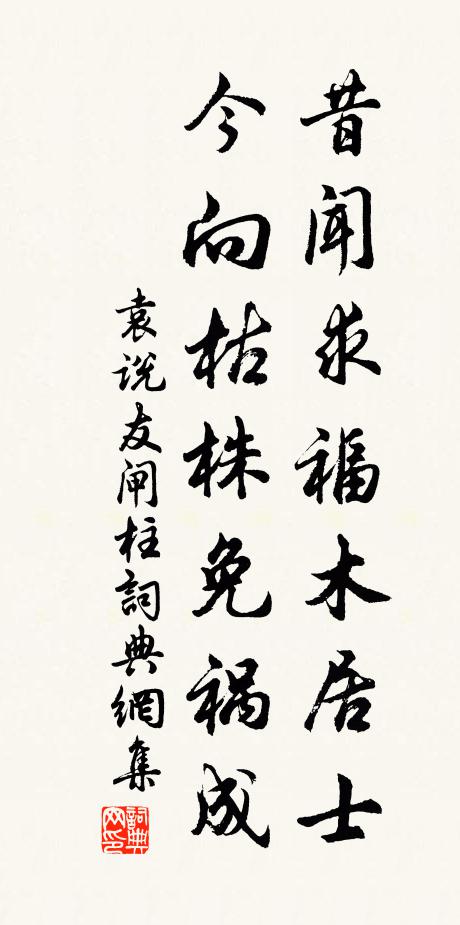 昔闻求福木居士
今向枯株免祸成
袁说友闸柱詞典網集
詞典网印